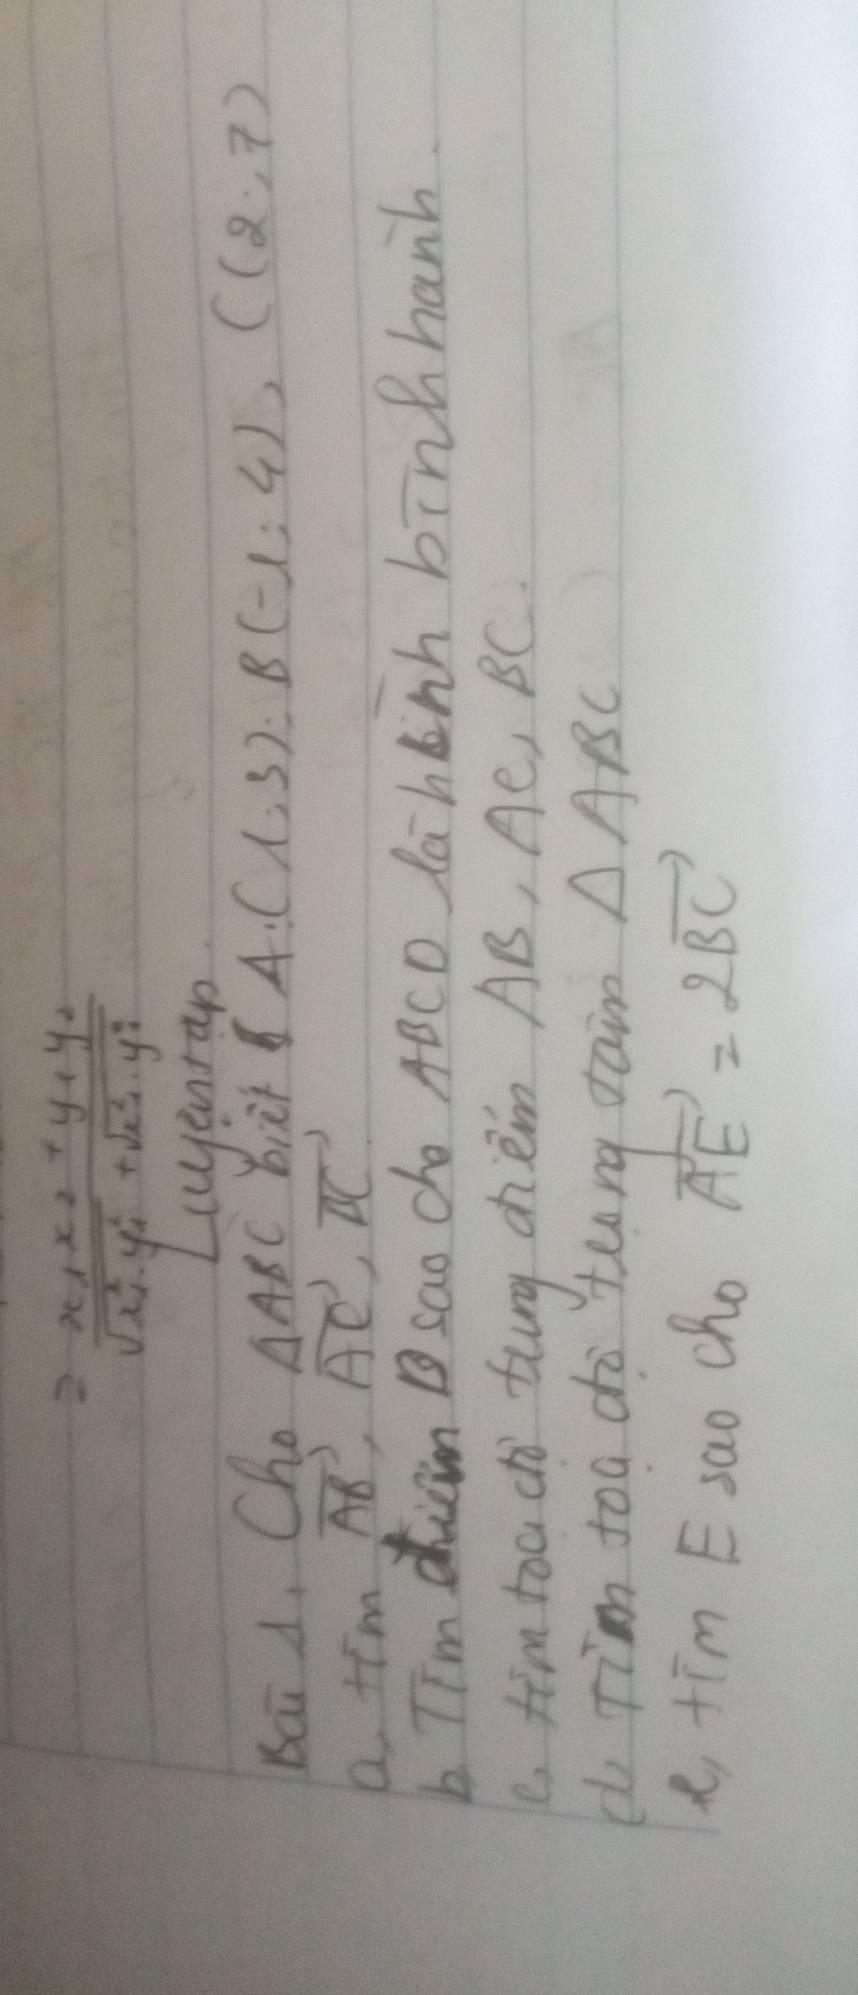 = x₁x₂ + y₁y₂
√x₁².y₁² + √x₂².y₂²
Luyện tập.
Bài 1, Cho ΔABC biết A:(1;3); B(-1;4), C(2;7)
a, tìm AB, AC, BC
b Tìm điểm D sao cho ABCD là hình bình hành.
c, tìm toạ độ trung điểm AB, AC, BC.
d, Tìm toạ độ trọng tâm Δ ABC
e, tìm E sao cho AE = 2BC